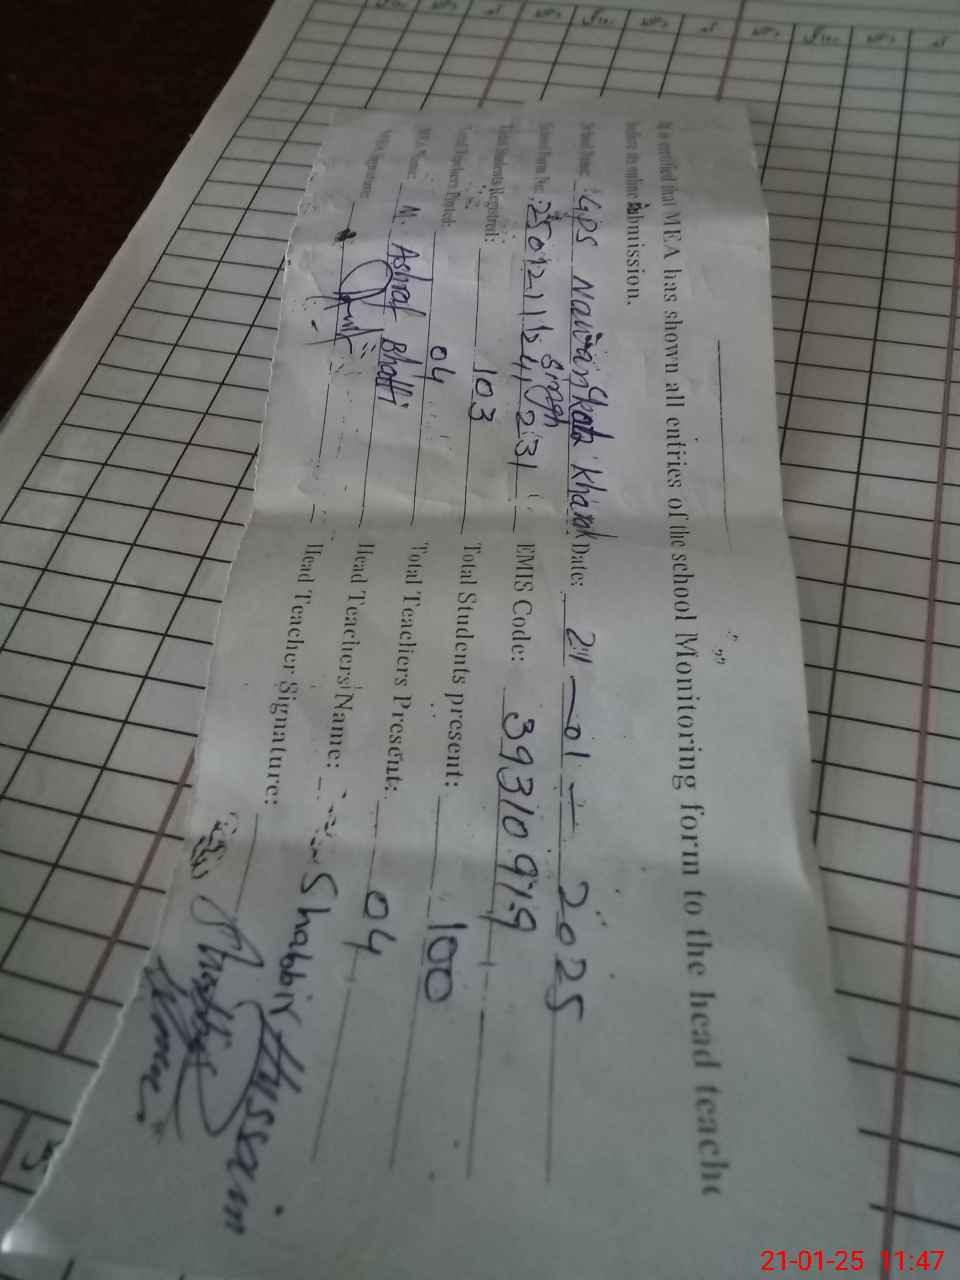 It is certified that MEA has shown all entries of the school Monitoring form to the head teache
before its online submission.
School Name: GPS Nawan Kota Kharak Singh Date: 21-01-2025
School Form No: EMIS Code: 39310919
Total Students Registred: 103 Total Students present: 100
Total Teachers Posted: 04 Total Teachers Present: 04
MEA Name: M. Ashraf Bhatti Head Teachers Name: Shabbir Hussain
MEA Signature: Head Teacher Signature:
21-01-25 11:47